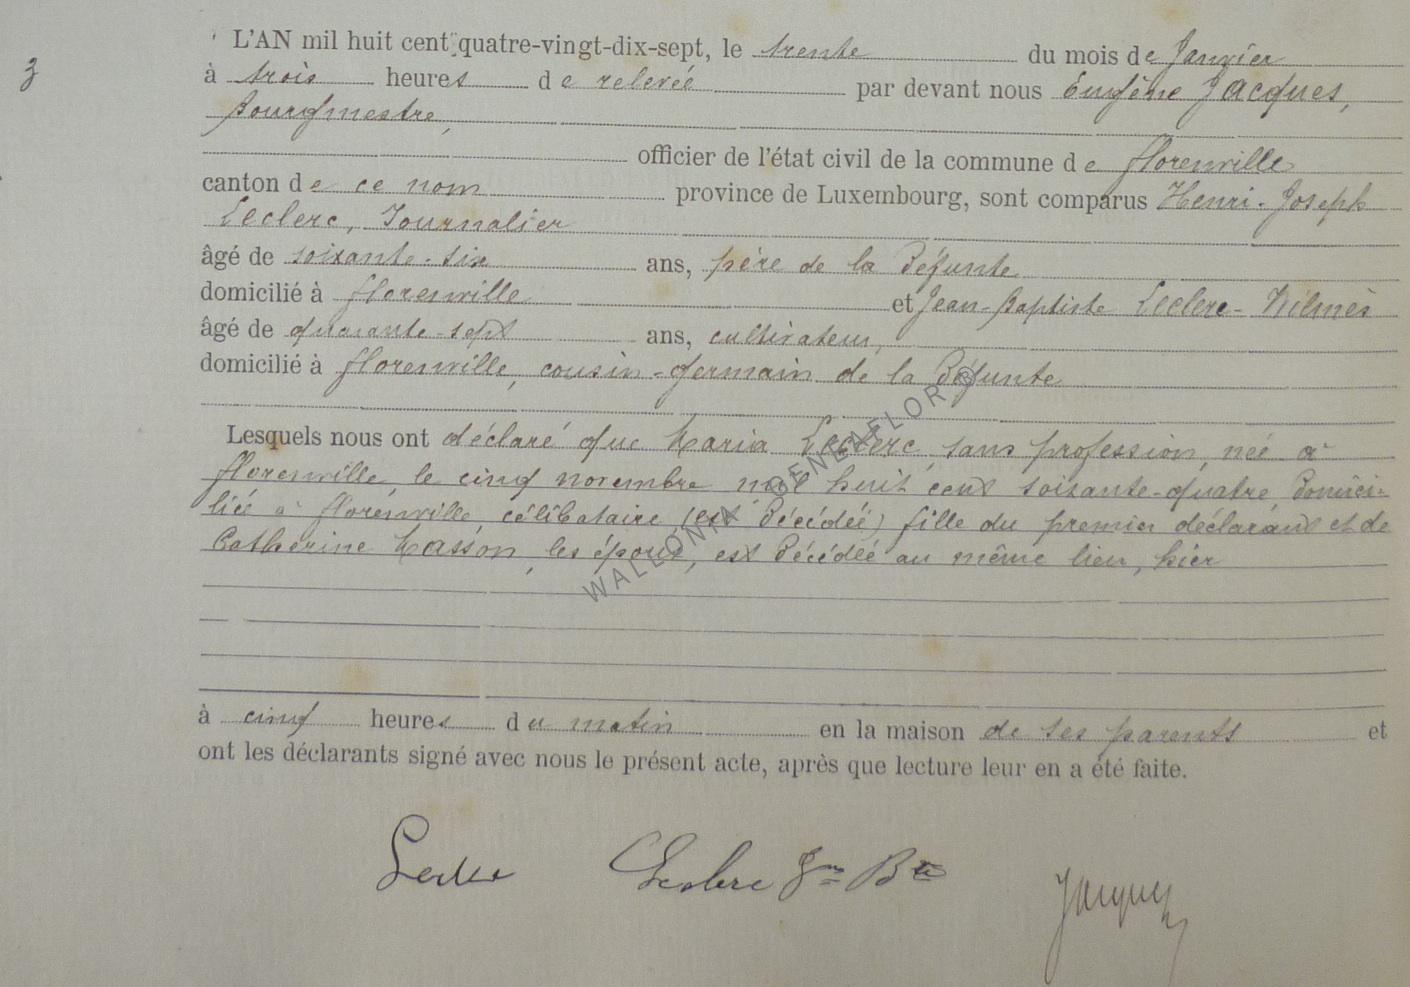 L'AN mil huit cent quatre-vingt-dix-sept, le trente du mois de Janvier
3
à trois heures de relevée par devant nous Eugène Jacques,
Bourgmestre,
officier de l'état civil de la commune de Florenville
canton de ce nom province de Luxembourg, sont comparus Henri-Joseph
Leclerc, Journalier
âgé de soixante-six ans, père de la Défunte
domicilié à Florenville et Jean-Baptiste Leclerc-Wilmès
âgé de quarante-sept ans, cultivateur,
domicilié à Florenville, cousin-germain de la Défunte
Lesquels nous ont déclaré que Maria Leclerc, sans profession, née à
Florenville, le cinq novembre mil huit cent soixante-quatre, Domici-
liée à Florenville, célibataire, (est Décédée) fille du premier déclarant et de
Catherine Masson, les époux, est Décédée au même lieu, hier
à cinq heures du matin en la maison de ses parents et
ont les déclarants signé avec nous le présent acte, après que lecture leur en a été faite.
Leclerc Leclerc Jn Bte Jacques
WALLONIA GENEAFLOR ©